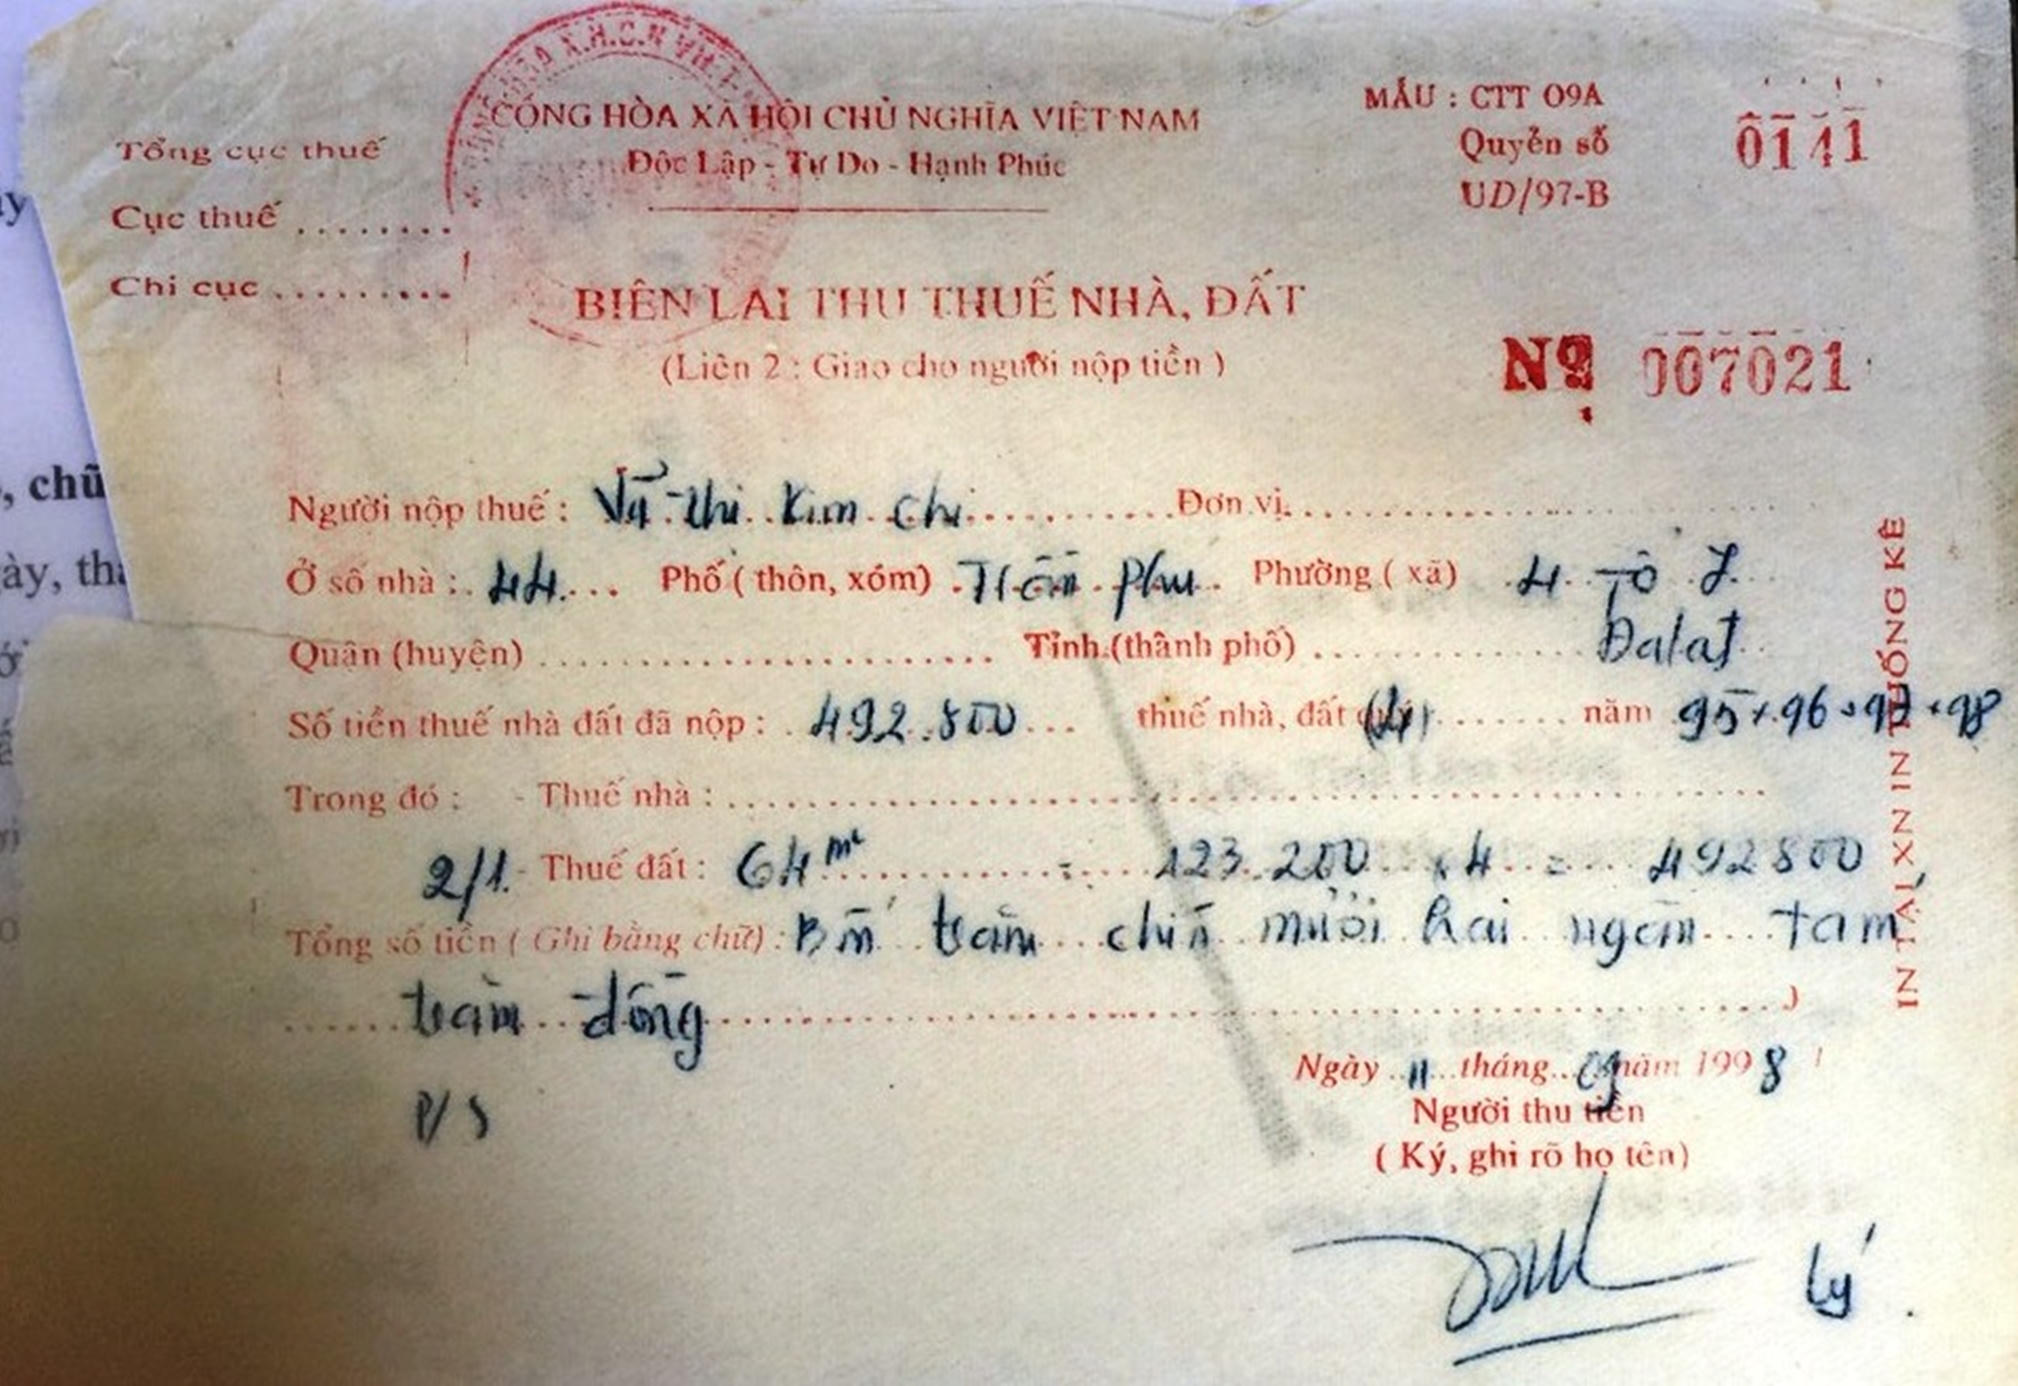 CỘNG HÒA XÃ HỘI CHỦ NGHĨA VIỆT NAM
Độc Lập - Tự Do - Hạnh Phúc
Tổng cục thuế
Cục thuế ........
Chi cục .........
MẪU : CTT 09A
Quyển số 0141
UD/97-B
BIÊN LAI THU THUẾ NHÀ, ĐẤT
(Liên 2 : Giao cho người nộp tiền )
Nº 007021
Người nộp thuế : Vũ Thị Kim Chi Đơn vị
Ở số nhà : 44 Phố ( thôn, xóm) Trần Phú Phường ( xã) 4 Tổ 7
Quận (huyện) Tỉnh (thành phố) Đalat
Số tiền thuế nhà đất đã nộp : 492.800 thuế nhà, đất (4) năm 95+96+97+98
Trong đó : - Thuế nhà :
2/1. - Thuế đất : 64 m² = 123.200 x 4 = 492800
Tổng số tiền ( Ghi bằng chữ) : Bốn trăm chín mươi hai ngàn tám
trăm đồng
P/S
Ngày 11 tháng 09 năm 1998
Người thu tiền
( Ký, ghi rõ họ tên)
Lý
IN TẠI XN IN THỐNG KÊ
, chữ